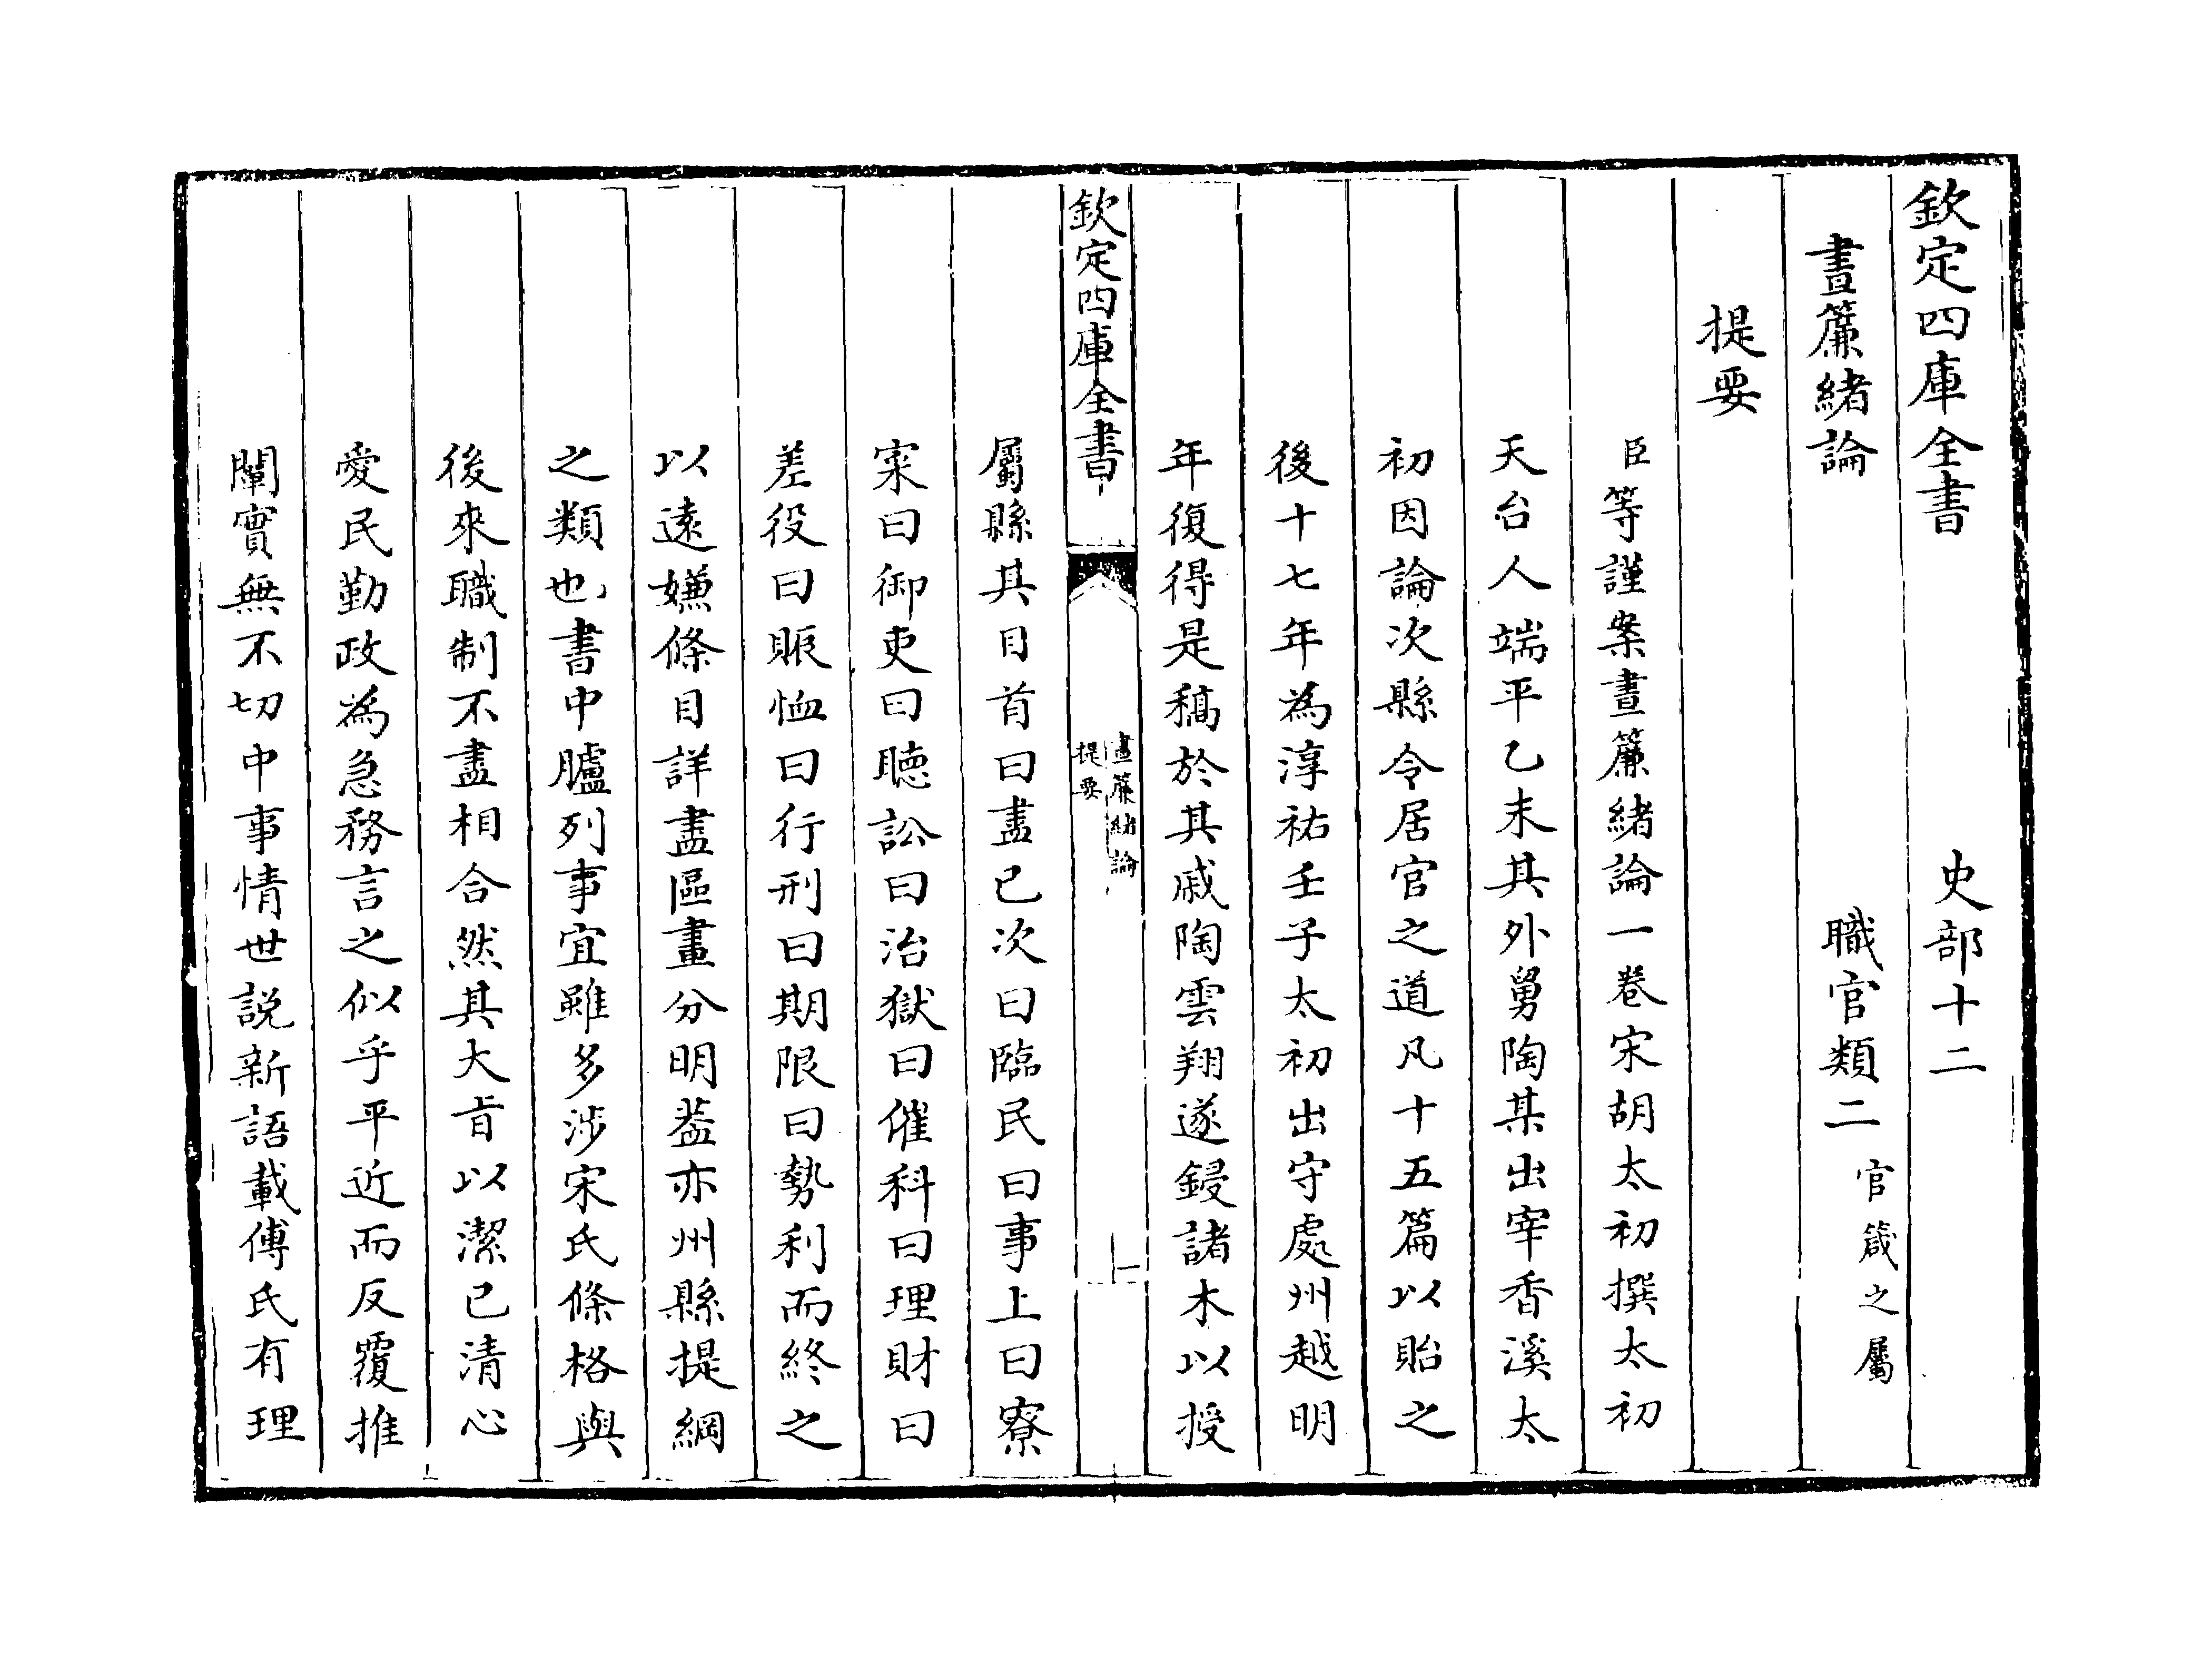 欽定四庫全書 史部十二
晝簾緒論 職官類二官箴之屬
提要
臣等謹案晝簾緒論一卷宋胡太初撰太初
天台人端平乙未其外舅陶某出宰香溪太
初因論次縣令居官之道凡十五篇以貽之
後十七年為淳祐壬子太初出守處州越明
年復得是稿於其戚陶雲翔遂鋟諸木以授
欽定四庫全書
晝簾緒論
提要
一
屬縣其目首曰盡己次曰臨民曰事上曰寮
寀曰御吏曰聽訟曰治獄曰催科曰理財曰
差役曰賑恤曰行刑曰期限曰勢利而終之
以遠嫌條目詳盡區畫分明葢亦州縣提綱
之類也書中臚列事宜雖多涉宋氏條格與
後來職制不盡相合然其大㫖以潔己清心
愛民勤政為急務言之似乎平近而反覆推
闡實無不切中事情世説新語載傅氏有理